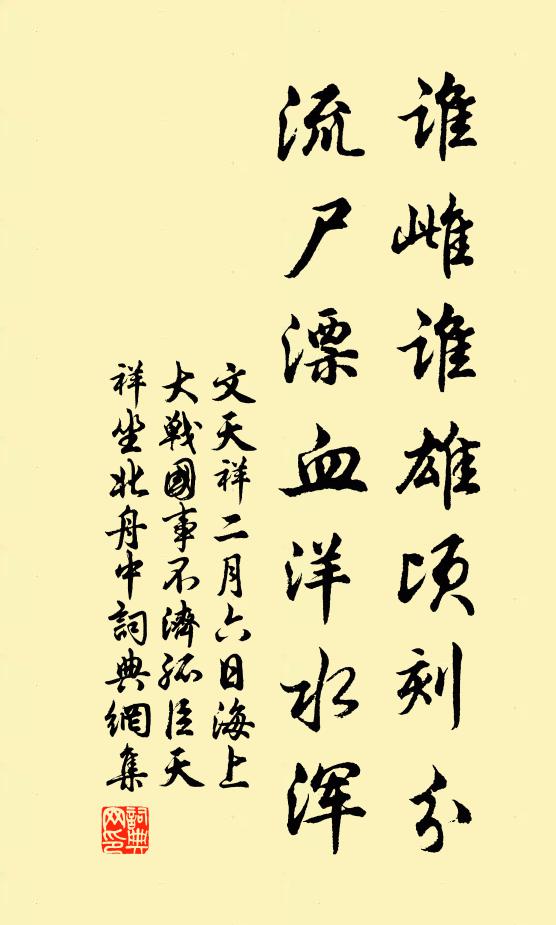 谁雌谁雄顷刻分
流尸漂血洋水浑
文天祥二月六日海上
大戦國事不濟孤臣天
祥坐北舟中詞典網集
詞典网印